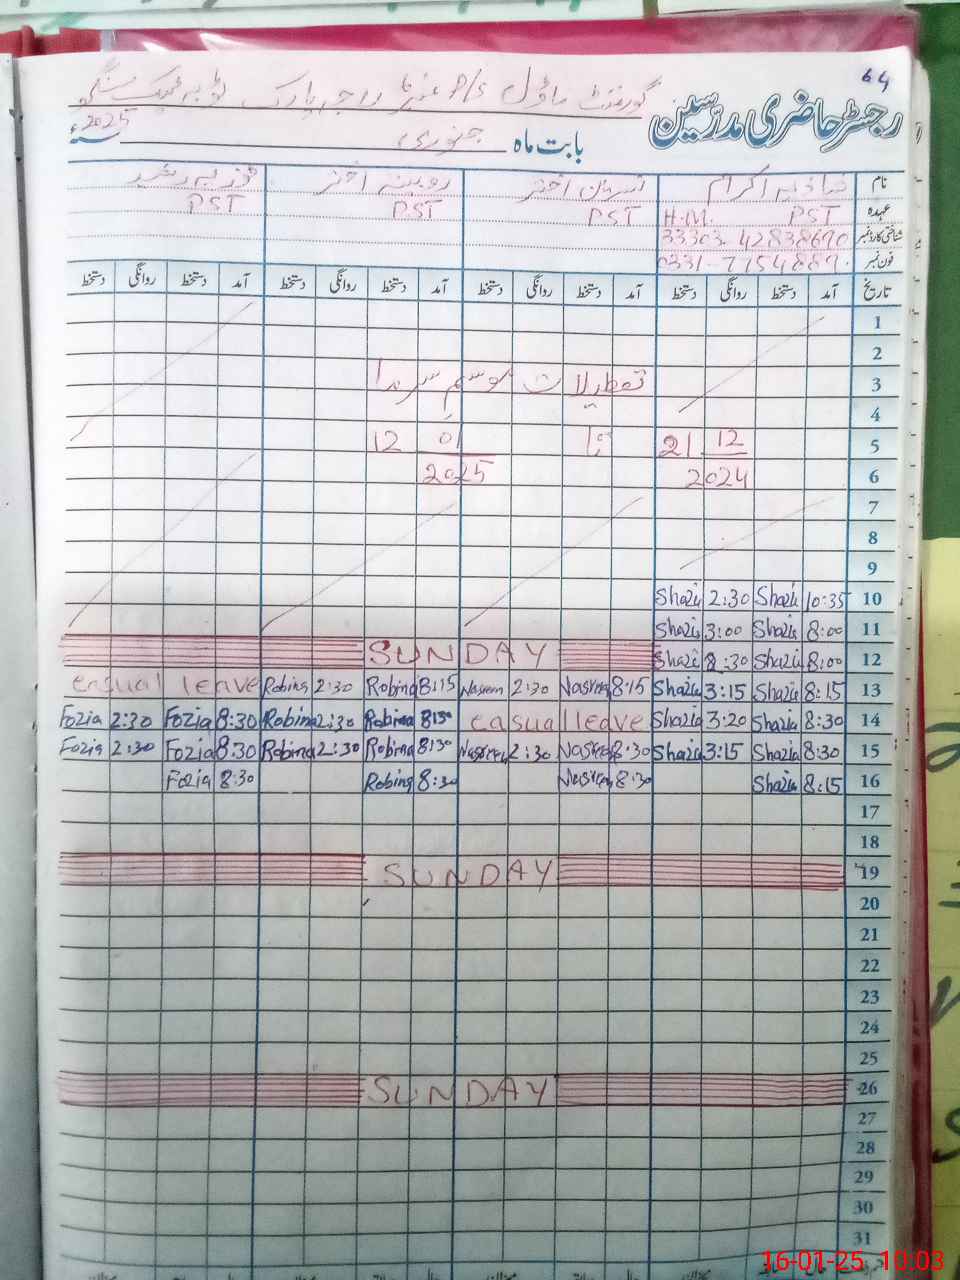 64
رجسٹر حاضری مدرسین
گورنمنٹ ماڈل P/S
بابت ماہ جنوری 2025
نام شازیہ اکرام نسرین اختر روبینہ اختر فوزیہ رشید
عہدہ PST H.M. PST PST PST
شناختی کارڈ نمبر 33303 42838690
فون نمبر
تاریخ آمد دستخط روانگی دستخط آمد دستخط روانگی دستخط آمد دستخط روانگی دستخط آمد دستخط روانگی دستخط
1
2
3 تعطیلات موسم سرما
4
5 21 12 تا 12 01
6 2024 2025
7
8
9
10 10:35 Shazia 2:30 Shazia
11 8:00 Shazia 3:00 Shazia
12 8:00 Shazia 8:30 Shazia SUNDAY
13 8:15 Shazia 3:15 Shazia 8:15 Nasreen 2:30 Nasreen 8:15 Robina 2:30 Robina casual leave
14 8:30 Shazia 3:20 Shazia casual leave 8:30 Robina 2:30 Robina 8:30 Fozia 2:30 Fozia
15 8:30 Shazia 3:15 Shazia 8:30 Nasreen 2:30 Nasreen 8:30 Robina 2:30 Robina 8:30 Fozia 2:30 Fozia
16 8:15 Shazia 8:30 Nasreen 8:30 Robina 8:30 Fozia
17
18
19 SUNDAY
20
21
22
23
24
25
26 SUNDAY
27
28
29
30
31
16-01-25 10:03